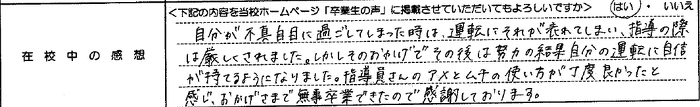 <下記の内容を当校ホームページ「卒業生の声」に掲載させていただいてもよろしいですか> はい ・ いいえ
在校中の感想
自分が不真面目に過ごしてしまった時は、運転にそれが表れてしまい、指導の際
は厳しくされました。しかしそのおかげでその後は努力の結果自分の運転に自信
が持てるようになりました。指導員さんのアメとムチの使い方が丁度良かったと
感じ、おかげさまで無事卒業できたので感謝しております。